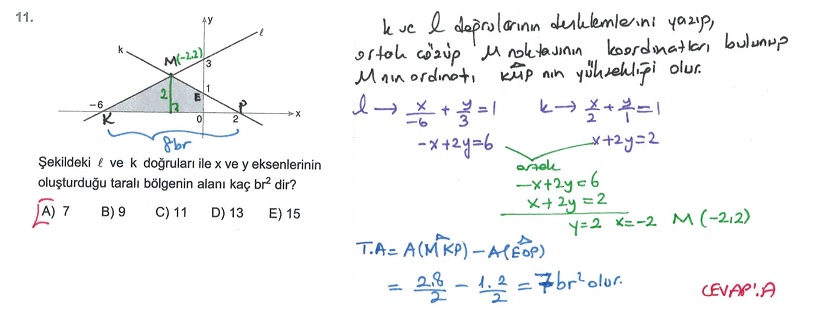 11.
y
ℓ
k
M(-2,2)
3
2
E
1
-6
K
0
2
P
x
8br
Şekildeki ℓ ve k doğruları ile x ve y eksenlerinin
oluşturduğu taralı bölgenin alanı kaç br² dir?
A) 7 B) 9 C) 11 D) 13 E) 15
k ve l doğrularının denklemlerini yazıp,
ortak çözüp M noktasının koordinatları bulunup
M nın ordinatı KMP nin yüksekliği olur.
l → x/-6 + y/3 = 1 k → x/2 + y/1 = 1
-x+2y=6 x+2y=2
ortak
-x+2y=6
x+2y=2
y=2 x=-2 M(-2,2)
T.A = A(MKP) - A(EOP)
= 2.8/2 - 1.2/2 = 7br² olur.
CEVAP:A